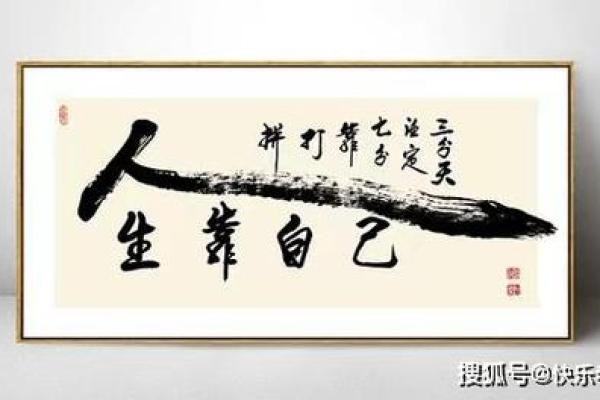 人
生靠自己
三分天
注定
七分
靠
打
拼
搜狐号@快乐